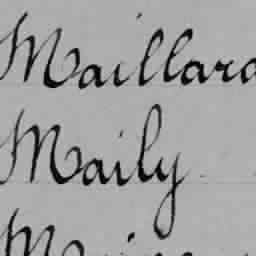 Maillard
Maily